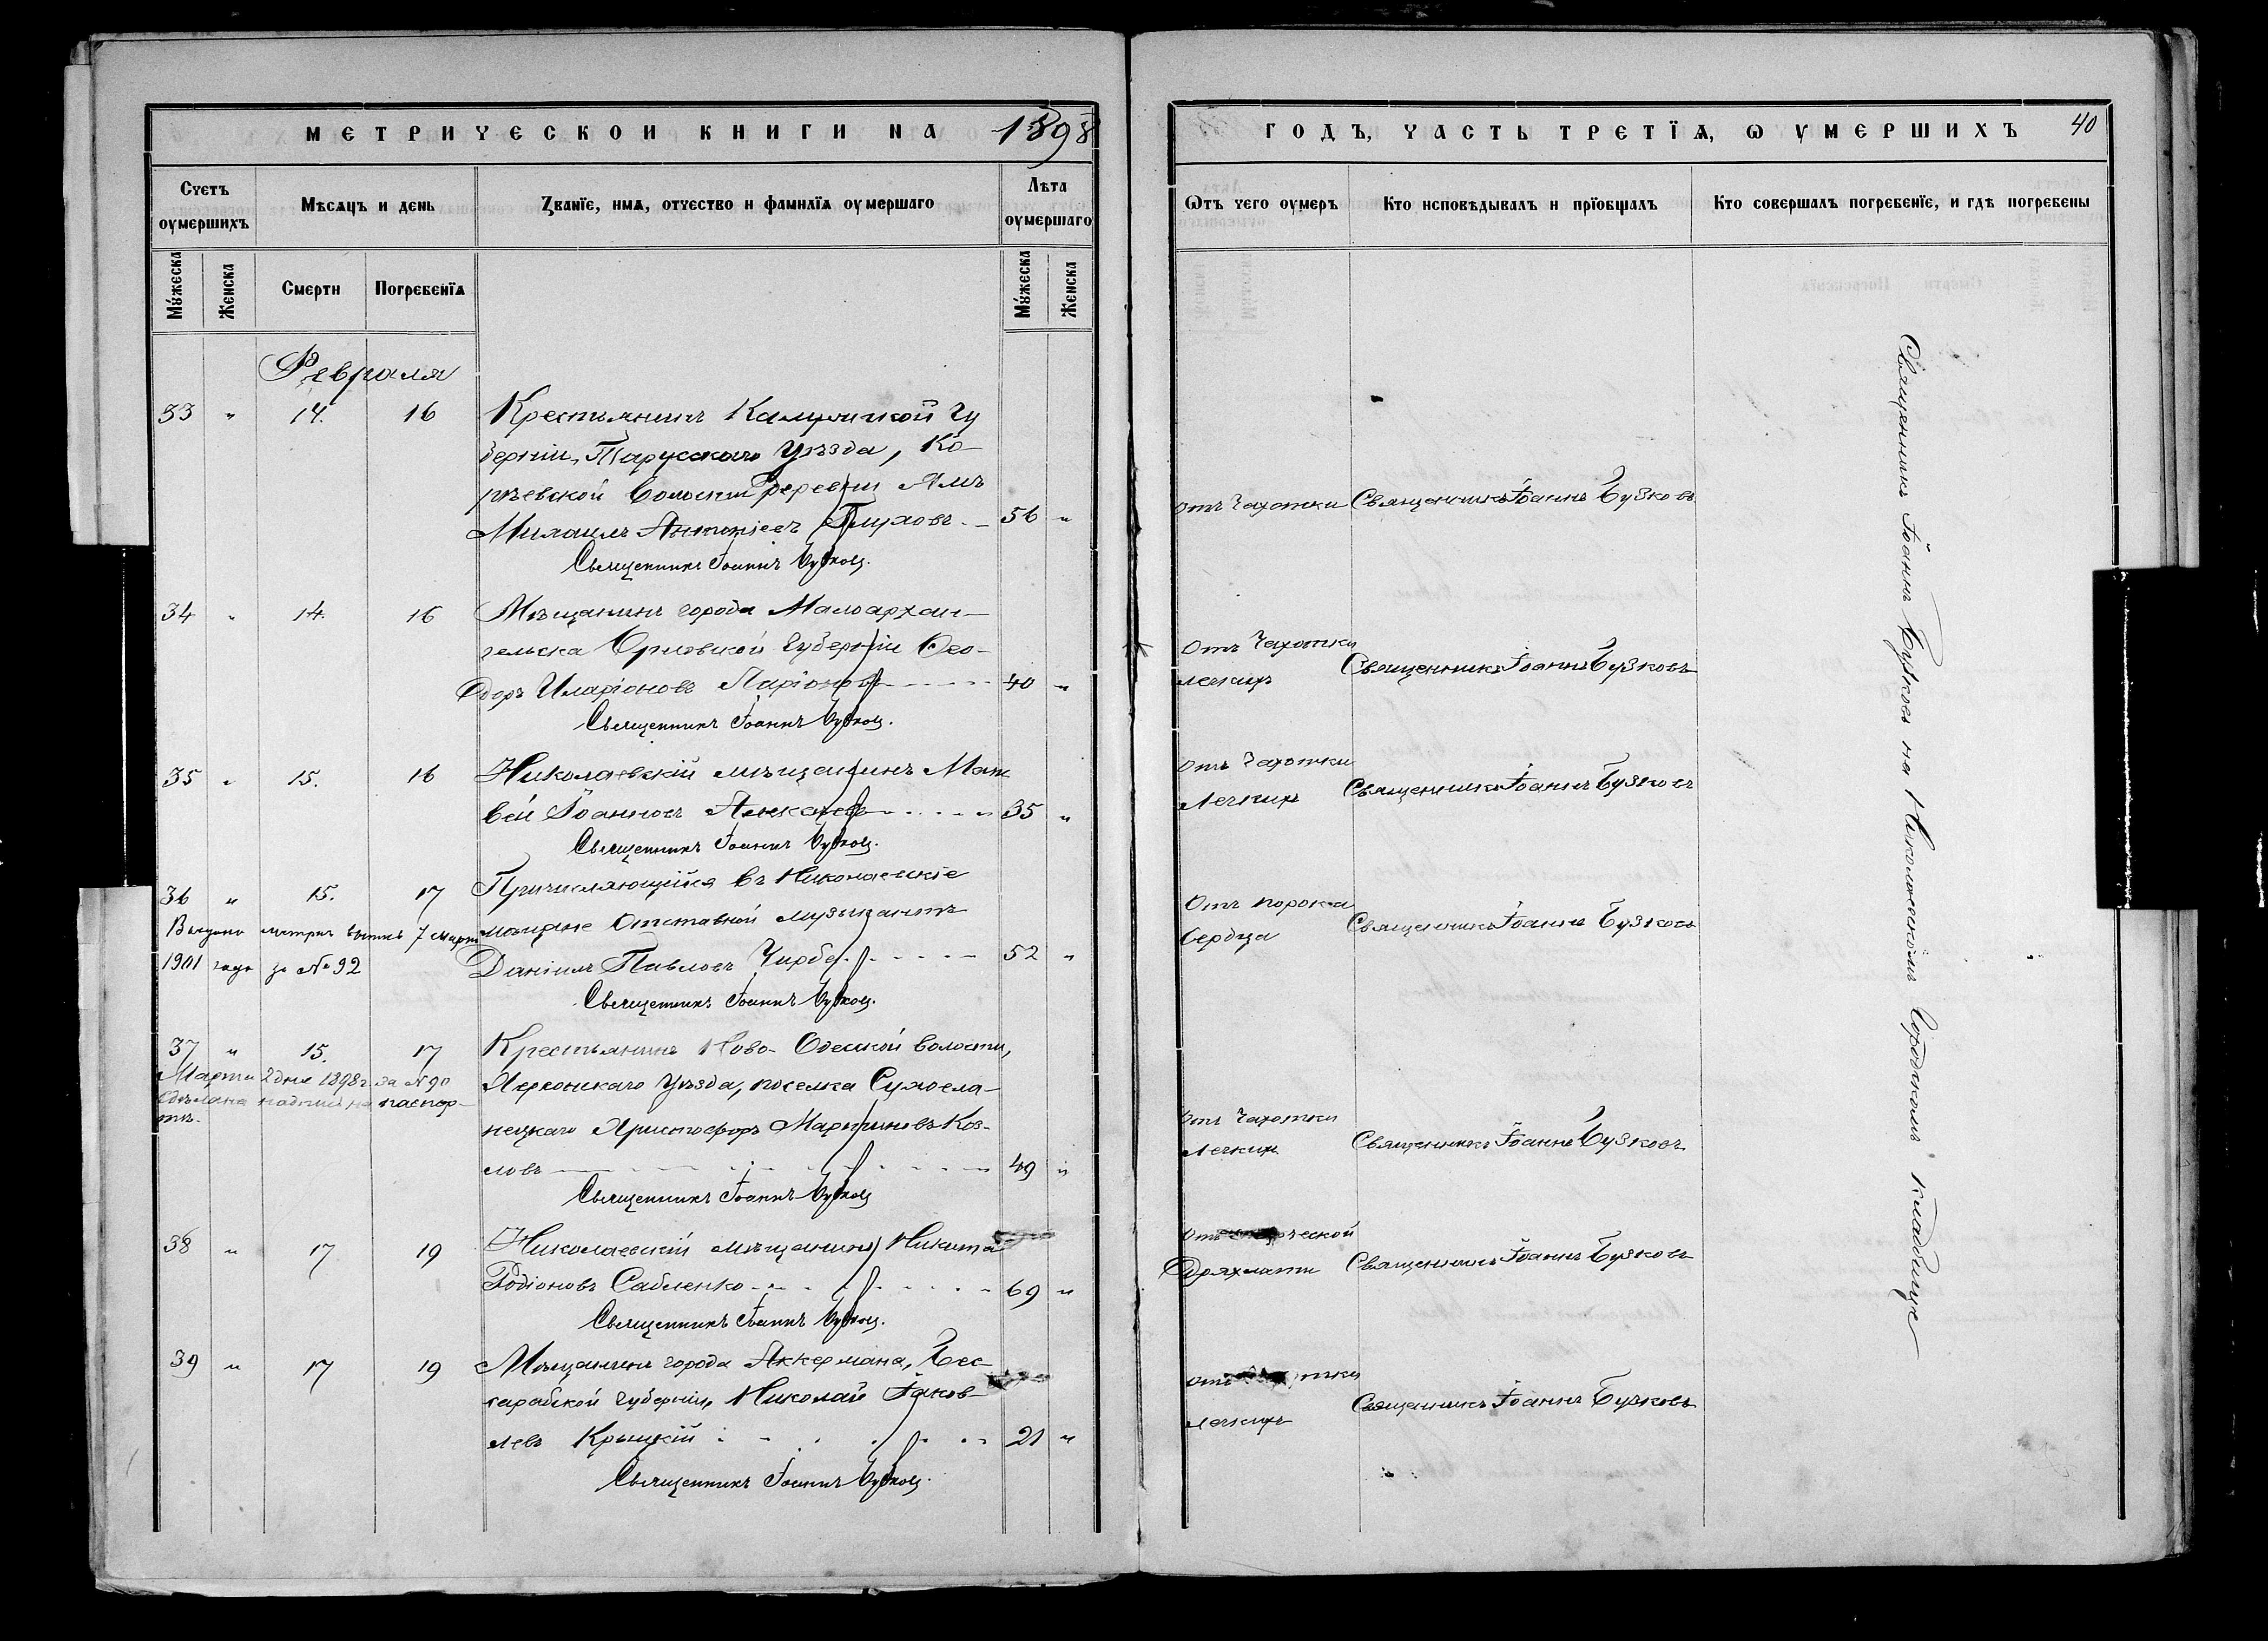 МЕТРИЧЕСКОЙ КНИГИ НА 1898
Счетъ оумершихъ
Мѣсяцъ и день
Званїе, имѧ, отчество и фамилїѧ оумершаго
Лѣта оумершаго
Мꙋжеска
Женска
Смерти
Погребенїѧ
Мꙋжеска
Женска
Февраля
33 " 14. 16 Крестьянинъ Калужской гу
берніи, Тарусскаго Уѣзда, Ко-
волости деревни Ямъ
Михаилъ Антоніевъ Глуховъ 56 "
Священникъ Іоаннъ Бузковъ.
34 " 14. 16 Мѣщанинъ города Малоархан-
гельска Орловской губерніи Ѳео-
доръ Иларіоновъ Ларіоновъ 40 "
Священникъ Іоаннъ Бузковъ.
35 " 15. 16 Николаевскій мѣщанинъ Мат
вей Іоанновъ 35 "
Священникъ Іоаннъ Бузковъ.
36 " 15. 17 Причисляющійся въ Николаевскіе
мѣщане отставной музыкантъ
Даніилъ Павловъ Чирба 52 "
Выдана метрич выпись 7 марта
1901 года за № 92
Священникъ Іоаннъ Бузковъ.
37 " 15. 17 Крестьянинъ Ново-Одесской волости,
Марта 2 дня 1898 г. за № 90
сдѣлана надпись на паспор-
тѣ.
Херсонскаго Уѣзда, поселка Сухоела-
нецкаго Христофоръ Мартиновъ Коз-
ловъ 49 "
Священникъ Іоаннъ Бузковъ
38 " 17 19 Николаевскій мѣщанинъ Никита
Родіоновъ Сабленко 69 "
Священникъ Іоаннъ Бузковъ.
39 " 17 19 Мѣщанинъ города Аккермана, Бес-
сарабской губерніи, Николай Іаков-
левъ Крыцкій 21 "
Священникъ Іоаннъ Бузковъ.
ГОДЪ, ЧАСТЬ ТРЕТЇѦ, Ѡ ОУМЕРШИХЪ 40
Ѡтъ чего оумеръ
Кто исповѣдывалъ и прїобщалъ
Кто совершалъ погребенїе, и гдѣ погребены
Отъ Чахотки Священникъ Іоаннъ Бузковъ
Отъ Чахотки
легкихъ Священникъ Іоаннъ Бузковъ
Отъ Чахотки
Легкихъ Священникъ Іоаннъ Бузковъ
Отъ порока
Сердца Священникъ Іоаннъ Бузковъ
Отъ Чахотки
Легкихъ Священникъ Іоаннъ Бузковъ
Отъ
Дряхлости Священникъ Іоаннъ Бузковъ
Отъ
легкихъ Священникъ Іоаннъ Бузковъ
Священникъ Іоаннъ Бузковъ на Николаевскомъ Городскомъ кладбищѣ